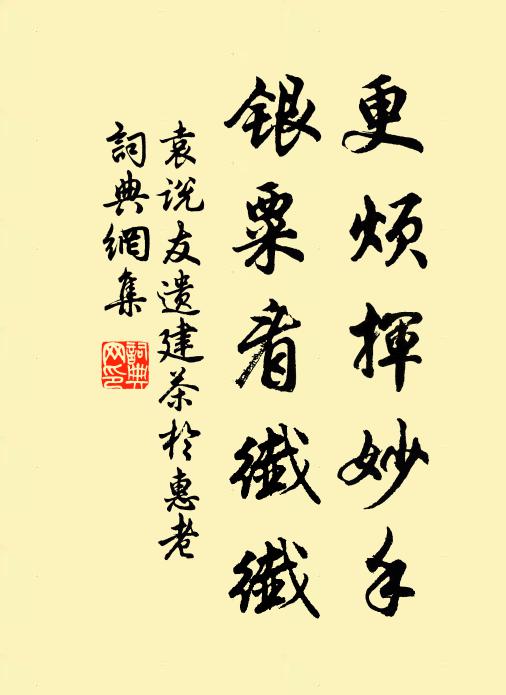 更煩揮妙手
銀粟看纖纖
袁说友遗建茶於惠老
詞典網集
詞典
网印